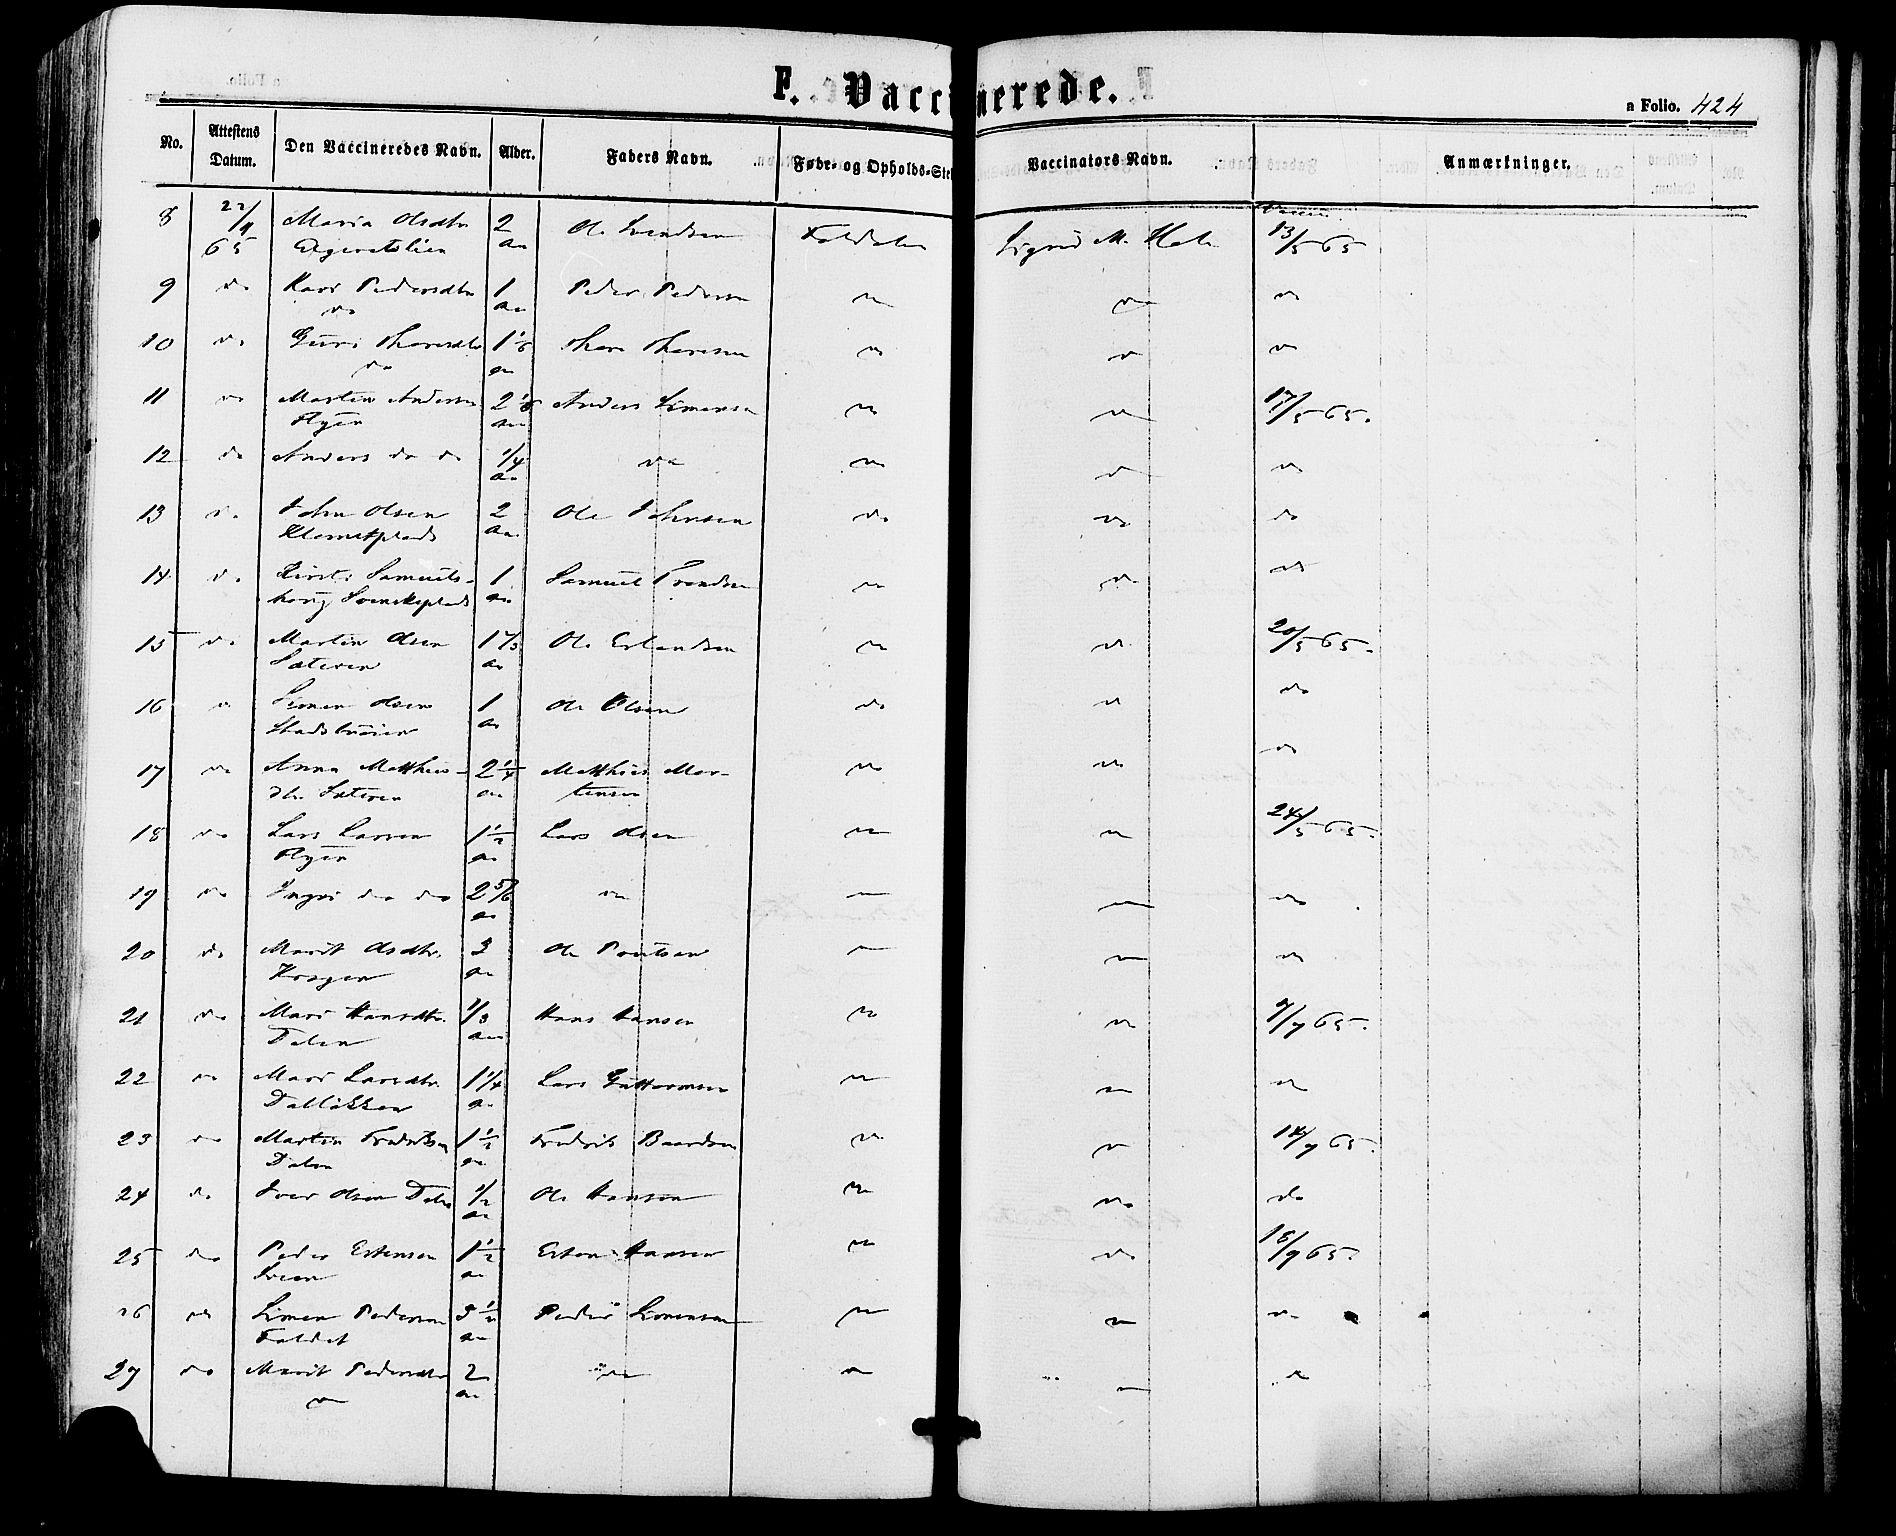 F. Vaccinerede.
a Folio. 424
No. Attestens Datum. Den Vaccineredes Navn. Alder. Faders Navn. Føde- og Opholds-Ste Vaccinators Navn. Anmærkninger.
8 22/9 65 Maria Olsdtr 2 Ole Svendsen Foldalen Sigrid M. 13/5 65
aar
9 do Kari Pedersdtr 1 Peder Pedersen do do do
do aar
10 do Guri Thoresdtr 1 1/6 Thore Thoresen do do do
do aar
11 do Morten Andersen 2 1/6 Anders Simensen do do 17/5 65.
Ryen aar
12 do Anders do do 1/4 do do do do
aar
13 do John Olsen 2 Ole Johnsen do do do
aar
14 do Kirsti Samuels- 1 Samuel Trondsen do do do
aar
15 do Martin Olsen 1 1/3 Ole Erlandsen do do 20/5 65.
Sæteren aar
16 do Simen Olsen 1 Ole Olsen do do do
aar
17 do Anna Matthis- 2 1/4 Matthis Mor- do do do
dtr. Sæteren aar tensen
18 do Lars Larsen 1 1/2 Lars Olsen do do 24/5 65.
Ryen aar
19 do Ingri do do 2 5/6 do do do do
aar
20 do Marit Olsdtr. 3 Ole do do do
Krogen aar
21 do Mari Hansdtr. 1/3 Hans Hansen do do 9/7 65.
Dalen aar
22 do Mari Larsdtr. 1 1/4 Lars Guttormsen do do do
Dalløkken aar
23 do Martin Fredriksen 1 1/2 Fredrik Baardsen do do 14/7 65.
Dalen aar
24 do Iver Olsen Dalen 1/2 Ole Hansen do do do
aar
25 do Peder Estensen 1 1/2 Esten Hansen do do 18/9 65.
aar
26 do Simen Pedersen 3 1/2 Peder Simensen do do do
Foldet aar
27 do Marit Pedersdtr 2 do do do do
do aar